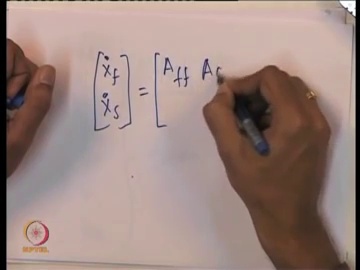 [ẋf ẋs] = [Aff Af
NPTEL